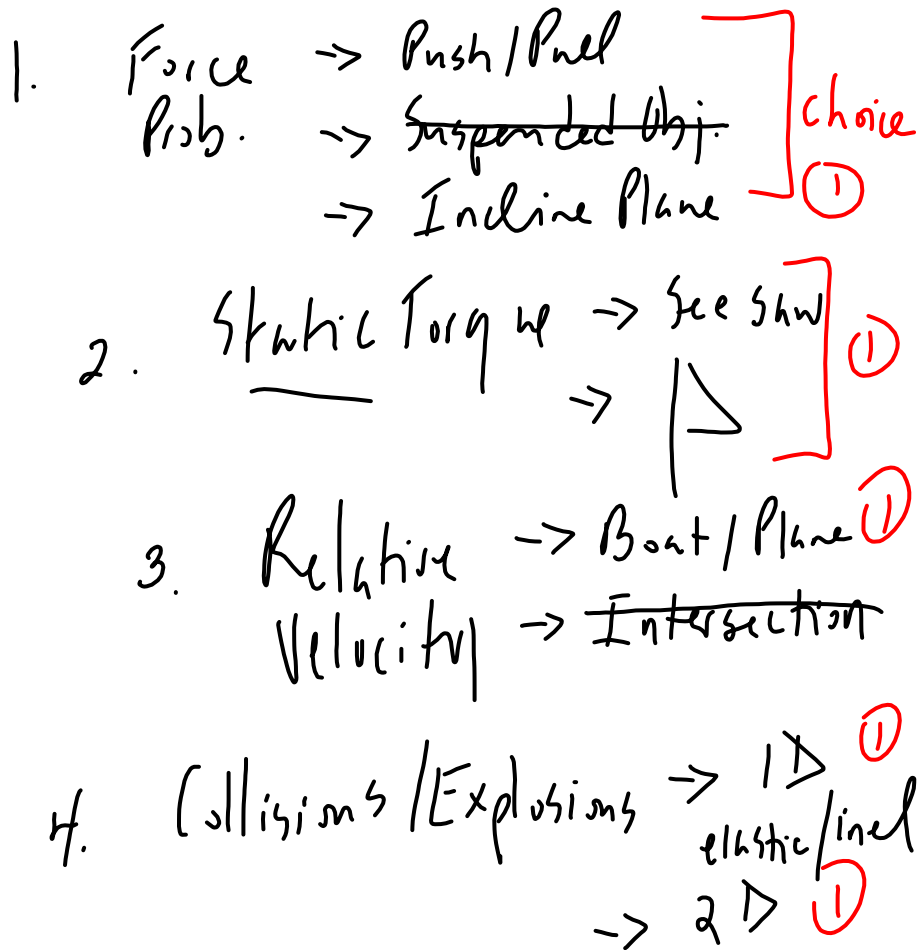 1. Force → Push/Pull
Prob. → Suspended Obj.
→ Incline Plane
choice
①
2. Static Torque → See Saw
→
①
3. Relative → Boat/Plane ①
Velocity → Intersection
4. Collisions/Explosions → 1D ①
elastic/inel
→ 2D ①